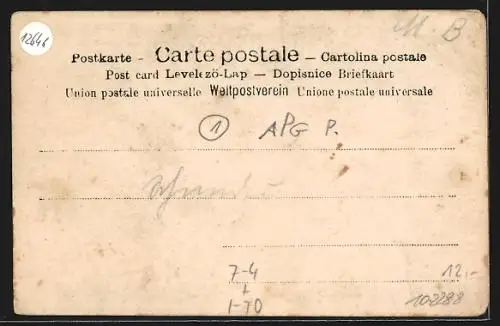 12646
M. B
Postkarte - Carte postale - Cartolina postale
Post card Levelező-Lap — Dopisnice Briefkaart
Union postale universelle Weltpostverein Unione postale universale
1 APG P.
7-4
1-70
12,-
102288